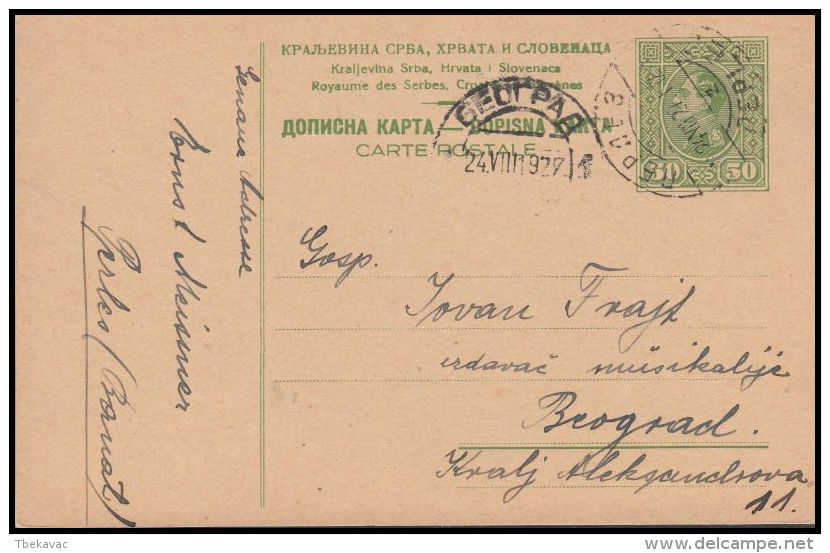 КРАЉЕВИНА СРБА, ХРВАТА И СЛОВЕНАЦА
Kraljevina Srba, Hrvata i Slovenaca
Royaume des Serbes,
ДОПИСНА КАРТА — DOPISNA KARTA
CARTE POSTALE
БЕОГРАД
24.VIII 1927
50 50
Genaue Adresse
Ernst Meissner
Perlez (Banat)
Gosp.
Jovan Frajt
izdavač müsikalije
Beograd.
Kralj Aleksandrova
11.
Tbekavac
delcampe.net